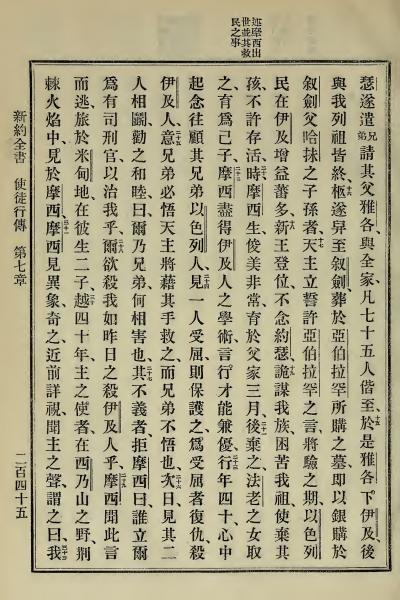 述摩西出
世並其救
民之事
瑟遂遣兄弟請其父雅各與全家凡七十五人偕至、於是雅各下伊及後
與我列祖皆終、柩遂舁至叙劍、葬於亞伯拉罕所購之墓、即以銀購於
叙劍父哈抹之子孫者、天主立誓許亞伯拉罕之言、將驗之期、以色列
民在伊及增益蕃多、新王登位、不念約瑟、詭謀我族、困苦我祖、使棄其
孩、不許存活、時摩西生、俊美非常、育於父家三月、後棄之、法老之女取
之、育爲己子、摩西盡得伊及人之學術、言行才能兼優、行年四十、心中
起念往顧其兄弟以色列人、見一人受屈、則保護之、爲受屈者復仇、殺
伊及人、意兄弟必悟天主將藉其手救之、而兄弟不悟也、次日見其二
人相鬭、勸之和睦、曰、爾乃兄弟、何相害也、其不義者、拒摩西曰、誰立爾
爲有司刑官以治我乎、爾欲殺我如昨日之殺伊及人乎、摩西聞此言
而逃、旅於米甸地、在彼生二子、越四十年、主之使者、在西乃山之野、荆
棘火焰中、見於摩西、摩西見異象奇之、近前詳視、聞主之聲、謂之曰、我
新約全書 使徒行傳 第七章 二百四十五